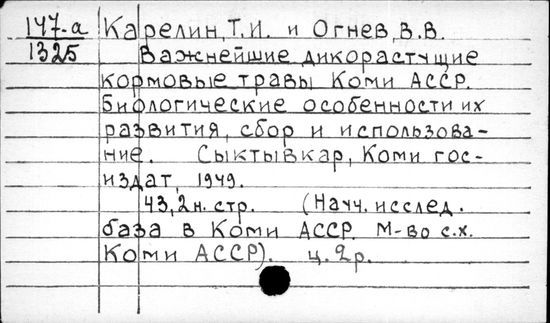 147-а Карелин, Т.И. и Огнев, В.В.
1325 Важнейшие дикорастущие
кормовые травы Коми АССР.
Биологические особенности их
развития, сбор и использова-
ние. Сыктывкар, Коми гос-
издат, 1949.
43, 2 н. стр. (Научн. исслед.
база в Коми АССР. М-во с.х.
Коми АССР). ц. 2р.